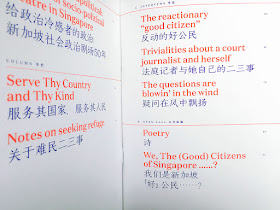 political
of Socio-political
atre in Singapore
给政治冷感者的政治
新加坡社会政治剧场50年
COLUMN 专栏
Serve Thy Country
and Thy Kind
服务其国家，服务其人民
Notes on seeking refuge
关于难民二三事
The reactionary
“good citizen”
反动的好公民
Trivialities about a court
journalist and herself
法庭记者与她自己的二三事
The questions are
blowin’ in the wind
疑问在风中飘扬
Poetry
诗
We, The (Good) Citizens
of Singapore ……?
我们是新加坡
「好」公民……?